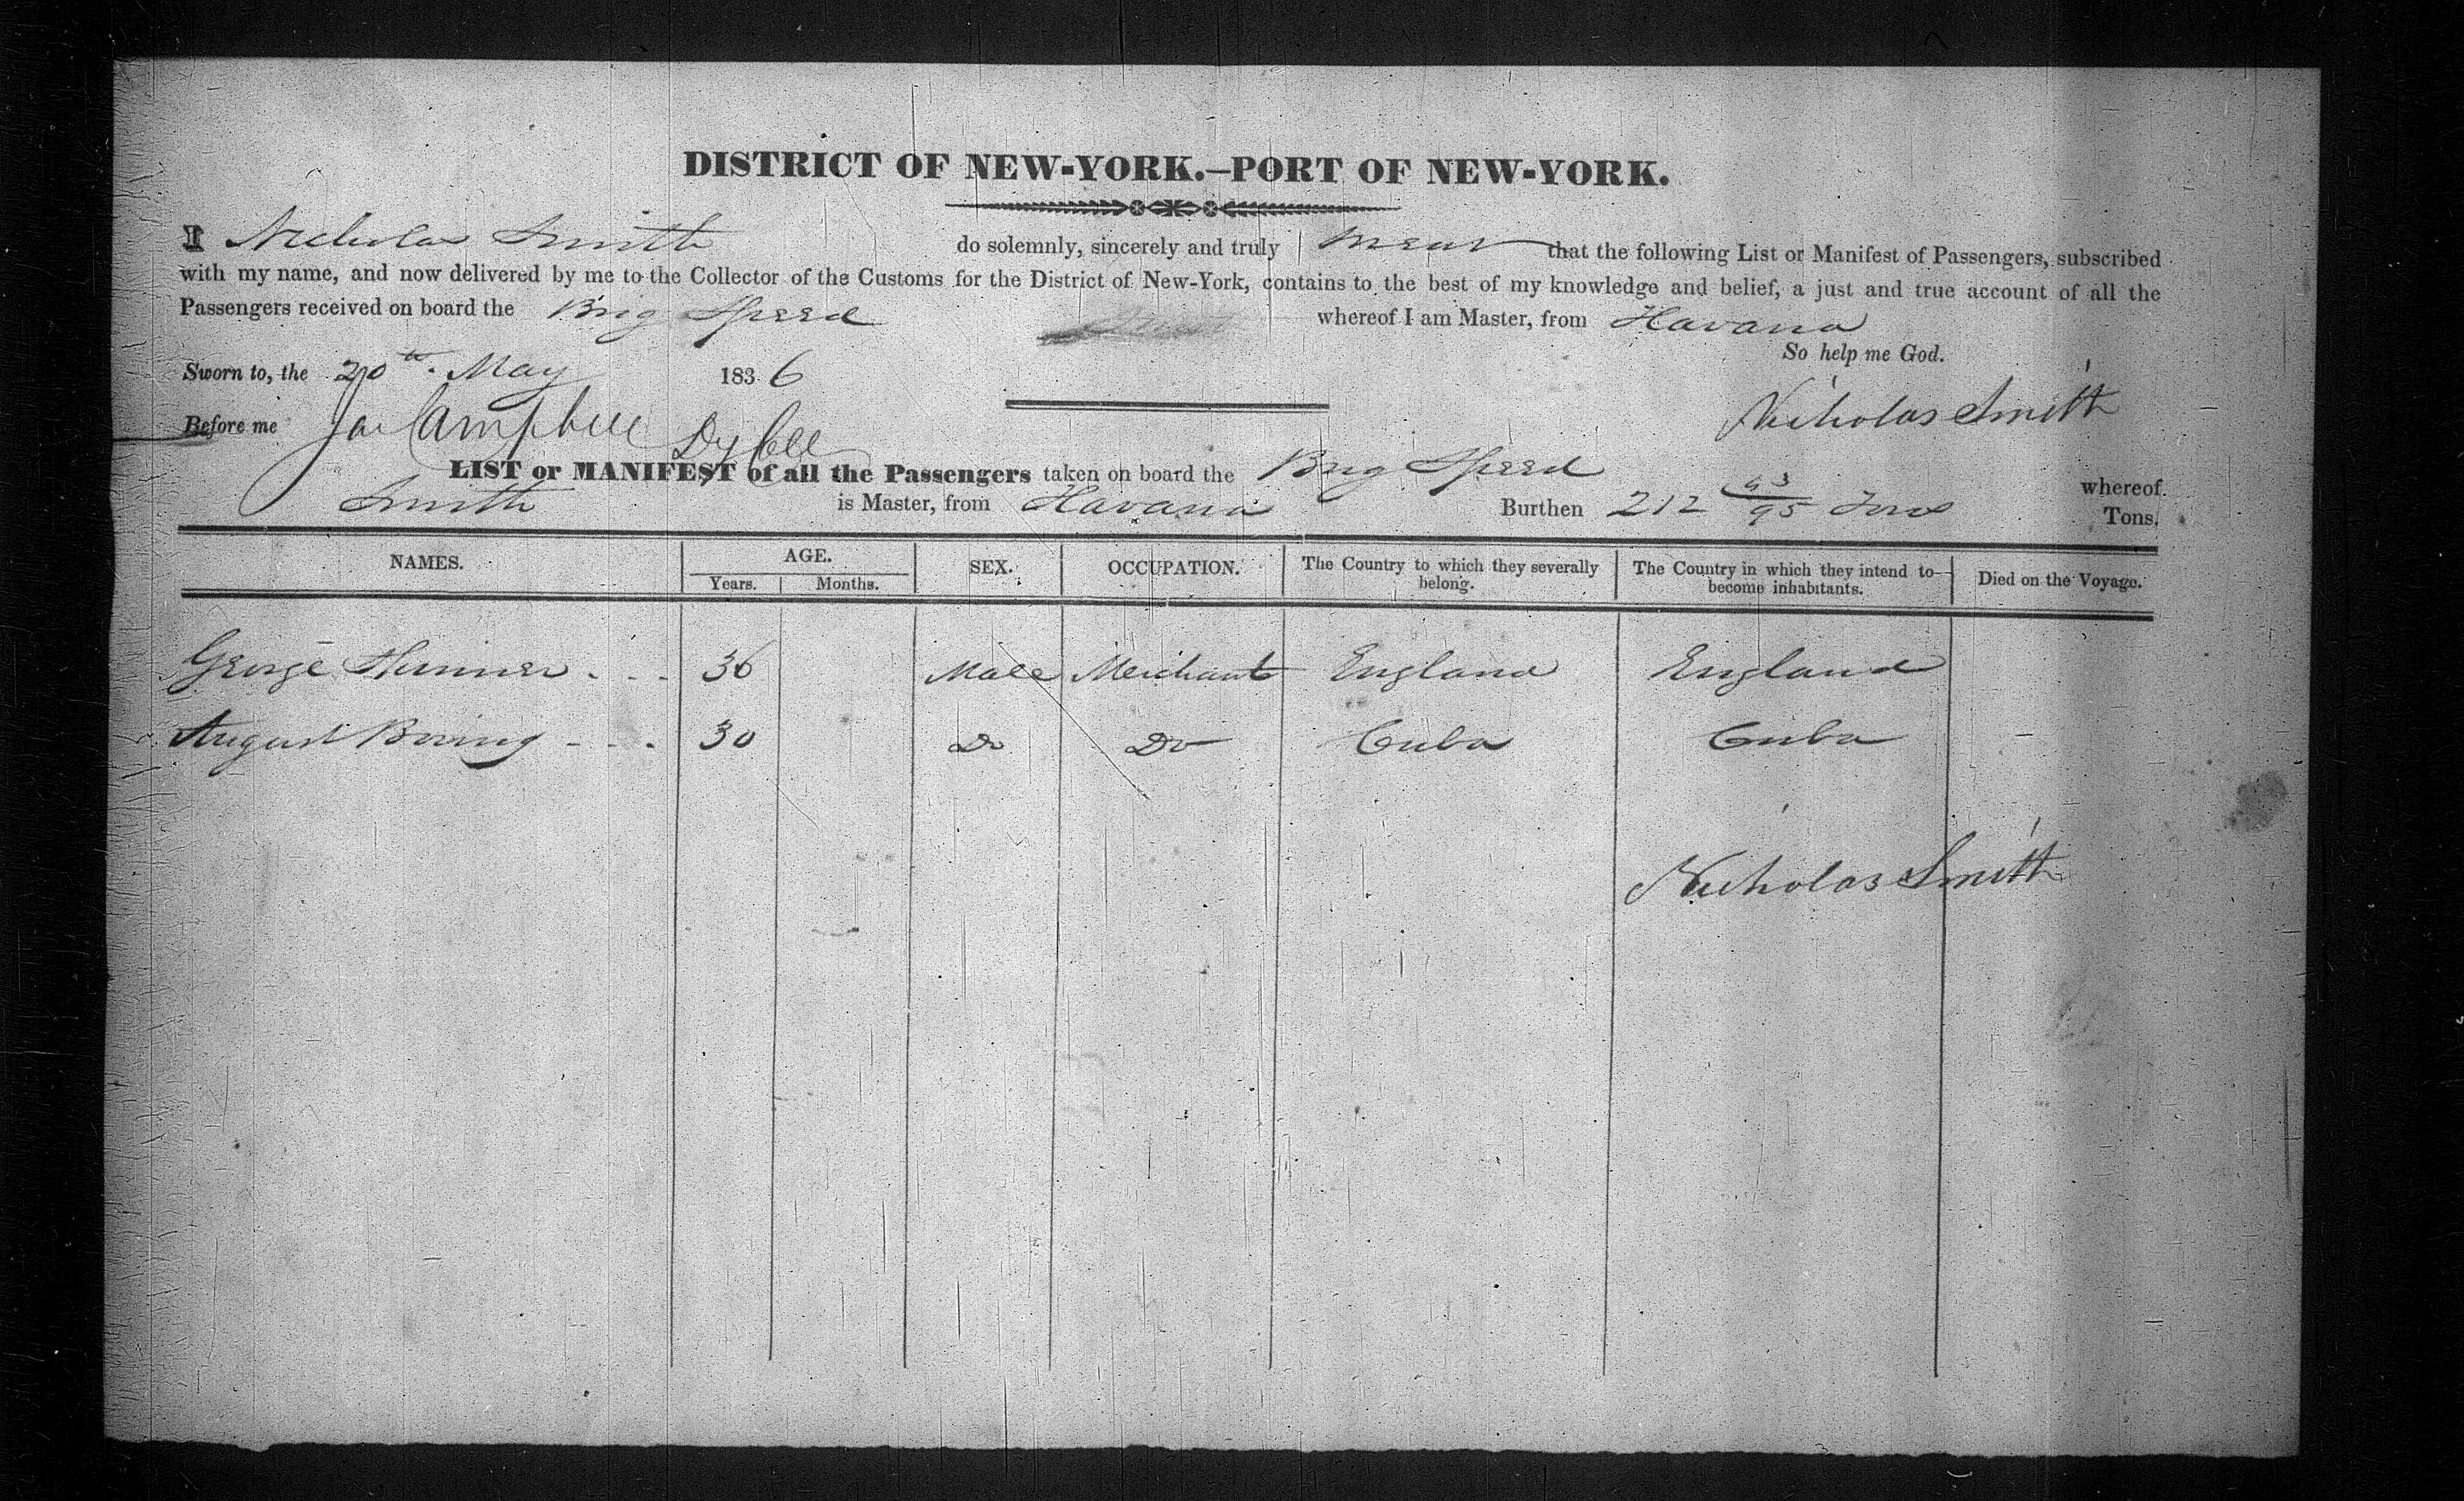 DISTRICT OF NEW-YORK.—PORT OF NEW-YORK.
I Nicholas Smith do solemnly, sincerely and truly swear that the following List or Manifest of Passengers, subscribed
with my name, and now delivered by me to the Collector of the Customs for the District of New-York, contains to the best of my knowledge and belief, a just and true account of all the
Passengers received on board the Brig Speed whereof I am Master, from Havana
So help me God.
Sworn to, the 20th May 1836
Nicholas Smith
Before me Jas Campbell Dy Coll
LIST or MANIFEST of all the Passengers taken on board the Brig Speed whereof
Smith is Master, from Havana Burthen 212 /95 Tons Tons.
NAMES. AGE. Years. Months. SEX. OCCUPATION. The Country to which they severally belong. The Country in which they intend to become inhabitants. Died on the Voyage.
George 36 Male Merchant England England
August 30 Do Do Cuba Cuba
Nicholas Smith